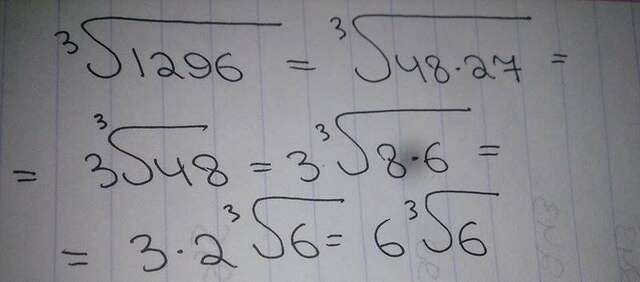 ³√1296 = ³√48·27 =
= 3³√48 = 3³√8·6 =
= 3·2³√6 = 6³√6